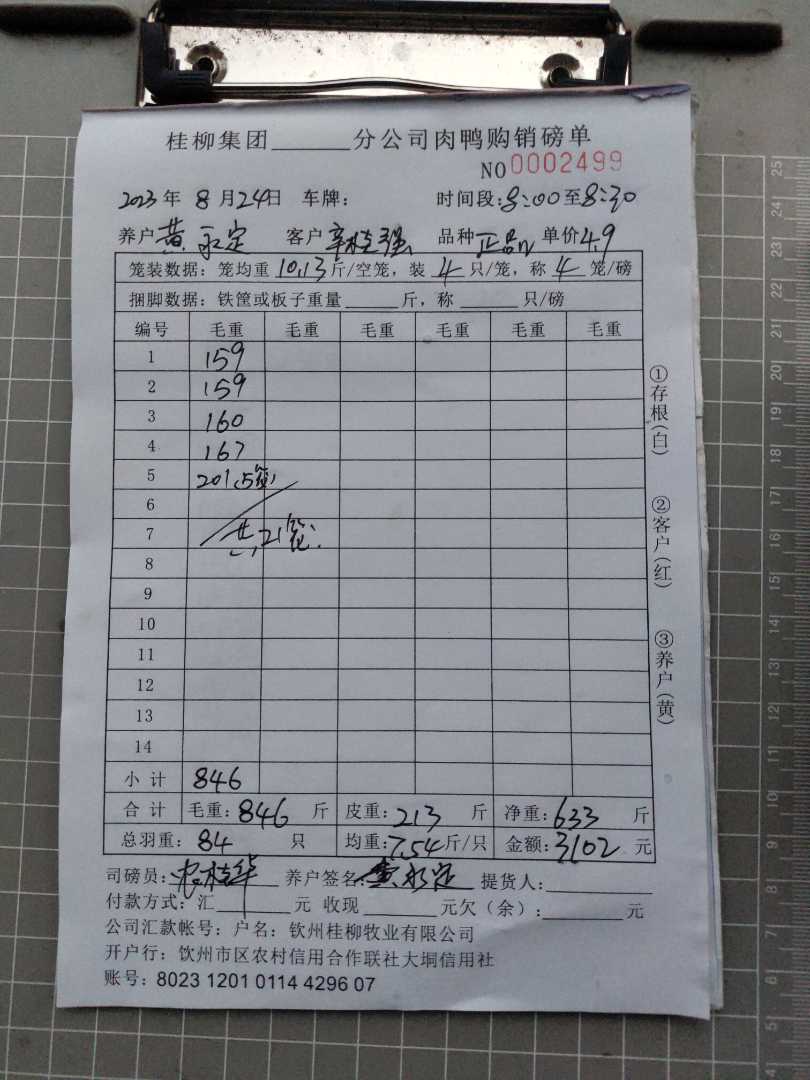 桂柳集团______分公司肉鸭购销磅单
NO 0002499
2023年 8月24日 车牌: 时间段:8:00至8:30
养户黄永定 客户辛桂强 品种正品 单价4.9
笼装数据:笼均重10.13斤/空笼,装4只/笼,称4笼/磅
捆脚数据:铁筐或板子重量_____斤,称_____只/磅
编号 毛重 毛重 毛重 毛重 毛重 毛重
1 159
2 159
3 160
4 167
5 201(5笼)
6
7 共21笼
8
9
10
11
12
13
14
小计 846
合计 毛重:846斤 皮重:213斤 净重:633斤
总羽重:84只 均重:7.54斤/只 金额:3102元
司磅员:农桂华 养户签名:黄永定 提货人:
付款方式:汇______元 收现______元欠(余):______元
公司汇款帐号:户名:钦州桂柳牧业有限公司
开户行:饮州市区农村信用合作联社大垌信用社
账号:8023 1201 0114 4296 07
①存根(白)
②客户(红)
③养户(黄)
25
24
23
22
21
20
19
18
17
16
15
14
13
12
11
10
9
8
7
6
5
4